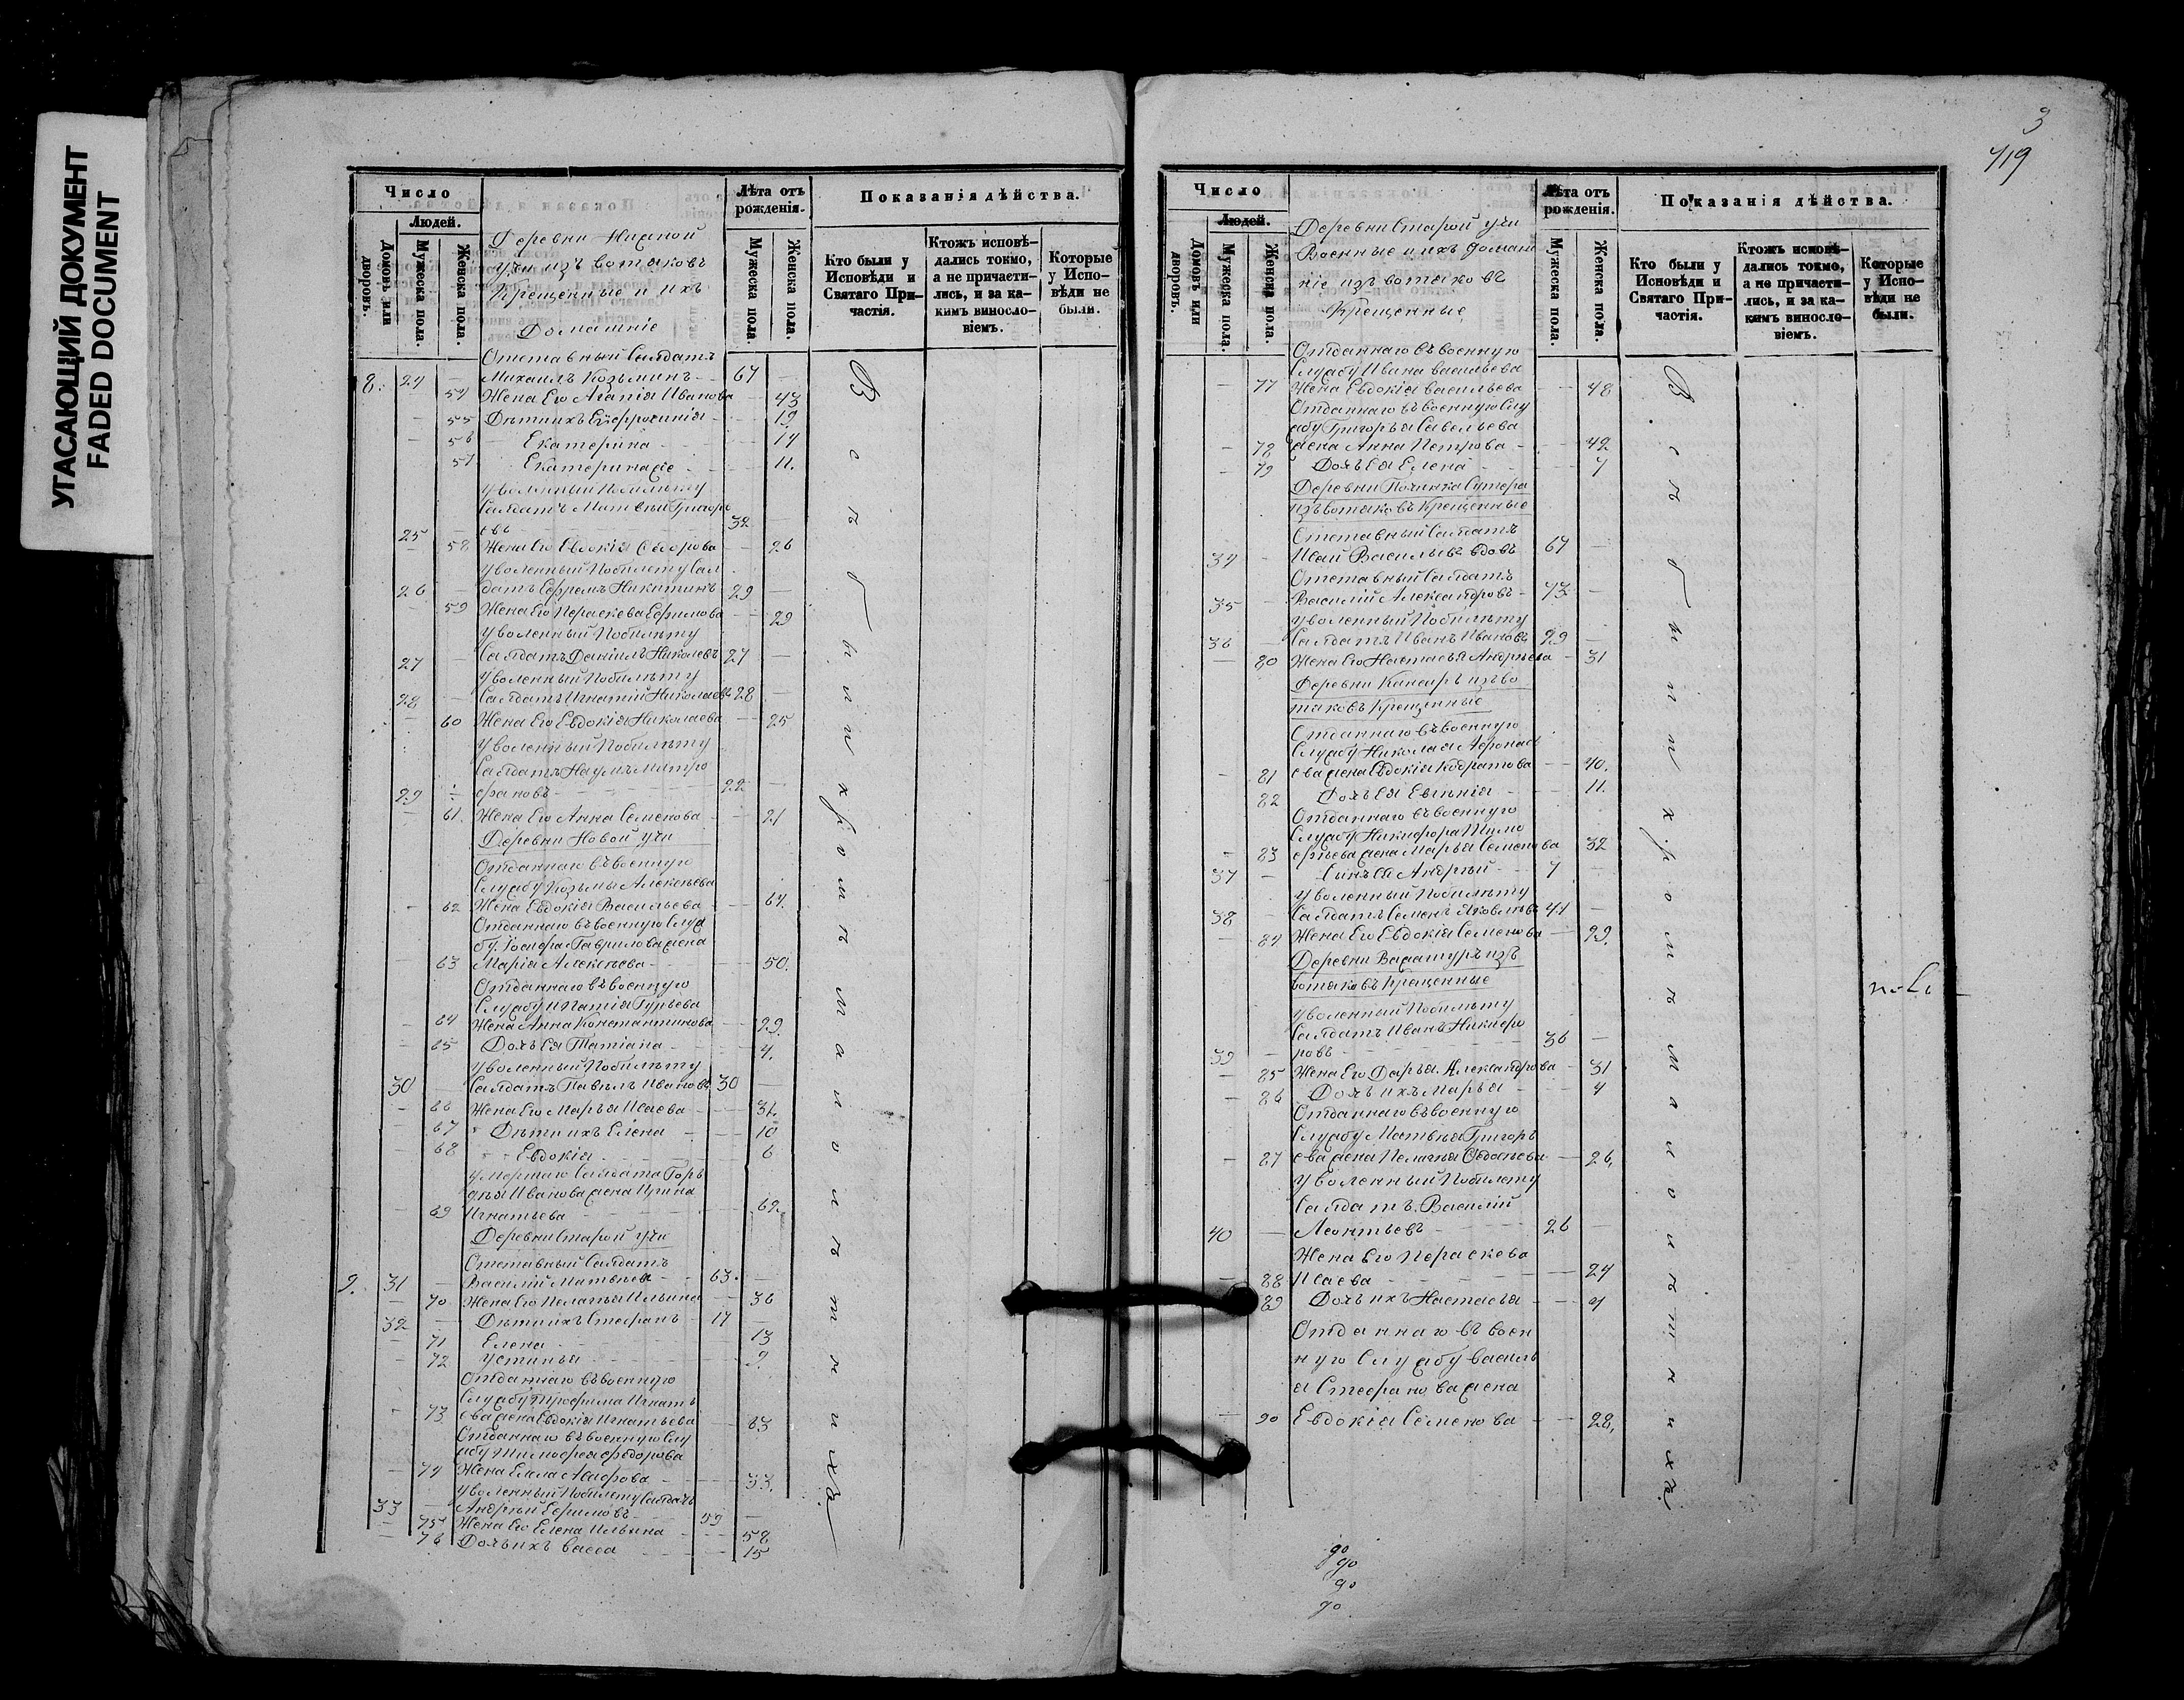 УГАСАЮЩИЙ ДОКУМЕНТ
FADED DOCUMENT
Число
Людей.
Домовъ или дворовъ.
Мужеска пола.
Женска пола.
Деревни Нижной
учи изъ вотяковъ
Крещенные и ихъ
Домашніе
Лѣта отъ рожденія.
Мужеска пола.
Женска пола.
Показанія дѣйства.
Кто были у Исповѣди и Святаго Причастія.
Ктожъ исповѣдались токмо, а не причастились, и за какимъ винословіемъ.
Которые у Исповѣди не были.
Отставный Салдатъ
8. 24 — Михаилъ Козьминъ — 67 —
54 Жена Его Агапія Иванова — 43
— 55 Дѣти ихъ Ефросинія — 19.
— 56 Екатерина — 14
57 Екатерина же — 11.
Уволенный Побилѣту
Салдатъ Матвѣй Григорь
25 — евъ — 32 —
— 58 Жена Его Евдокія Ѳедорова — 26
Уволенный Побилету Сал
26 — датъ Ефремъ Никитинъ 29 —
— 59 Жена Его Пераскева Ефимова — 29
Уволенный Побилѣту
27 — Салдатъ Даніилъ Николаевъ 27 —
Уволенный Побилѣту
28 — Салдатъ Игнатій Николаевъ 28 —
— 60 Жена Его Евдокія Николаева — 25
Уволенный Побилѣту
Салдатъ Наумъ Митро
29 — фановъ — 22 —
— 61. Жена Его Анна Семенова — 21
Деревни Новой учи
Отданнаго въ военную
Службу Козьмы Алексѣева
— 62 Жена Евдокія Васильева — 64.
Отданнаго въ военную служ
бу Іосифа Гаврилова жена
— 63 Марія Алексѣева — 50.
Отданнаго въ военную
Службу Ипатія Гурьева
— 64 Жена Анна Константинова — 29.
— 65 Дочь Ея Татіана — 4.
Уволенный Побилѣту
30 — Салдатъ Павелъ Ивановъ 30 —
— 66 Жена Его Марья Исаева — 31.
— 67 Дѣти ихъ Елена — 10
— 68 Евдокія — 6
Умершаго Салдата Горъ
дѣя Иванова жена Ирина
— 69 Игнатьева — 62.
Деревни Старой учи
Отставный Салдатъ
9. 31 — Василій Матвѣевъ — 63. —
— 70 Жена Его Пелагья Ильина — 36
32 — Дѣти ихъ Стефанъ — 17 —
— 71 Елена — 13
— 72 Устинья — 9.
Отданнаго въ военную
Службу Трофима Игнать
— 73 ева жена Евдокія Игнатьева — 63
Отданнаго въ военную Слу
жбу Тимофея Ѳедорова
— 74 Жена — 33.
Уволенный Побилету Салдатъ
33 — Андрей Ефимовъ — 59 —
— 75 Жена Его Елена Ильина — 58
— 76 Дочь ихъ Васса — 15
Всѣ были
3
719
Число
Людей.
Домовъ или дворовъ.
Мужеска пола.
Женска пола.
Деревни Старой учи
Военные и ихъ домаш
ніе изъ вотяковъ
Крещенные
Лѣта отъ рожденія.
Мужеска пола.
Женска пола.
Показанія дѣйства.
Кто были у Исповѣди и Святаго Причастія.
Ктожъ исповѣдались токмо, а не причастились, и за какимъ винословіемъ.
Которые у Исповѣди не были.
Отданнаго въ военную
Службу Ивана Васильева
— 77 Жена Евдокія Васильева — 48
Отданнаго въ военную слу
жбу Григорья Савельева
— 78 жена Анна Петрова — 42
— 79 Дочь Ея Елена — 7
Деревни Починка Сутера
изъ вотяковъ Крещенные
Отставный Салдатъ
34 — Исай Васильевъ вдовъ 67 —
Отставный Салдатъ
35 — Василій Александровъ — 73 —
Уволенный Побилѣту
36 — Салдатъ Иванъ Ивановъ 29 —
— 80 Жена Его Настасья Андрѣева — 31
Деревни Кансаръ изъ во
тяковъ Крещенные
Отданнаго въ военную
Службу Николая Аѳонась
— 81 ева жена Евдокія Кодратова — 40.
82 Дочь Ея Евгенія — 11.
Отданнаго въ военную
Службу Никифора Тимо
— 83 фѣева жена Марья Семенова 32
37 — Сынъ Ея Андрей — 7 —
Уволенный Побилѣту
38 — Салдатъ Семенъ Яковлевъ 41 —
— 84 Жена Его Евдокія Семенова — 29.
Деревни Важашуръ изъ
вотяковъ Крещенные
Уволенный Побилѣту
Салдатъ Иванъ Никифо
39 — ровъ — 36 —
— 85 Жена Его Дарья Александрова — 31
— 86 Дочь ихъ Марья — 4
Отданнаго въ военную
Службу Матвѣя Григорь
— 87 ева жена Пелагѣя Ѳедосѣева — 26,
Уволенный Побилету
Салдатъ Василій
40 — Леонтьевъ — 26 —
Жена Его Пераскева
— 88 Исаева — 24
89 Дочь ихъ Настасья — 4
Отданнаго въ воен
ную Службу Василь
я Стефанова жена
— 90 Евдокія Семенова — 28,
до
до
до
до